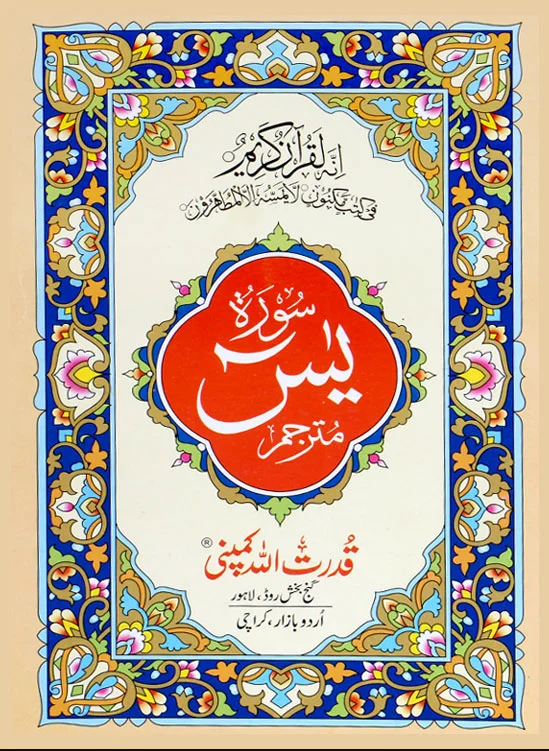 انه لقرآن كريم
فى كتب مكنون لا يمسه الا المطهرون
سورة
يٰسٓ
مترجم
قدرت اللہ کمپنی ®
گنج بخش روڈ، لاہور
اُردو بازار، کراچی